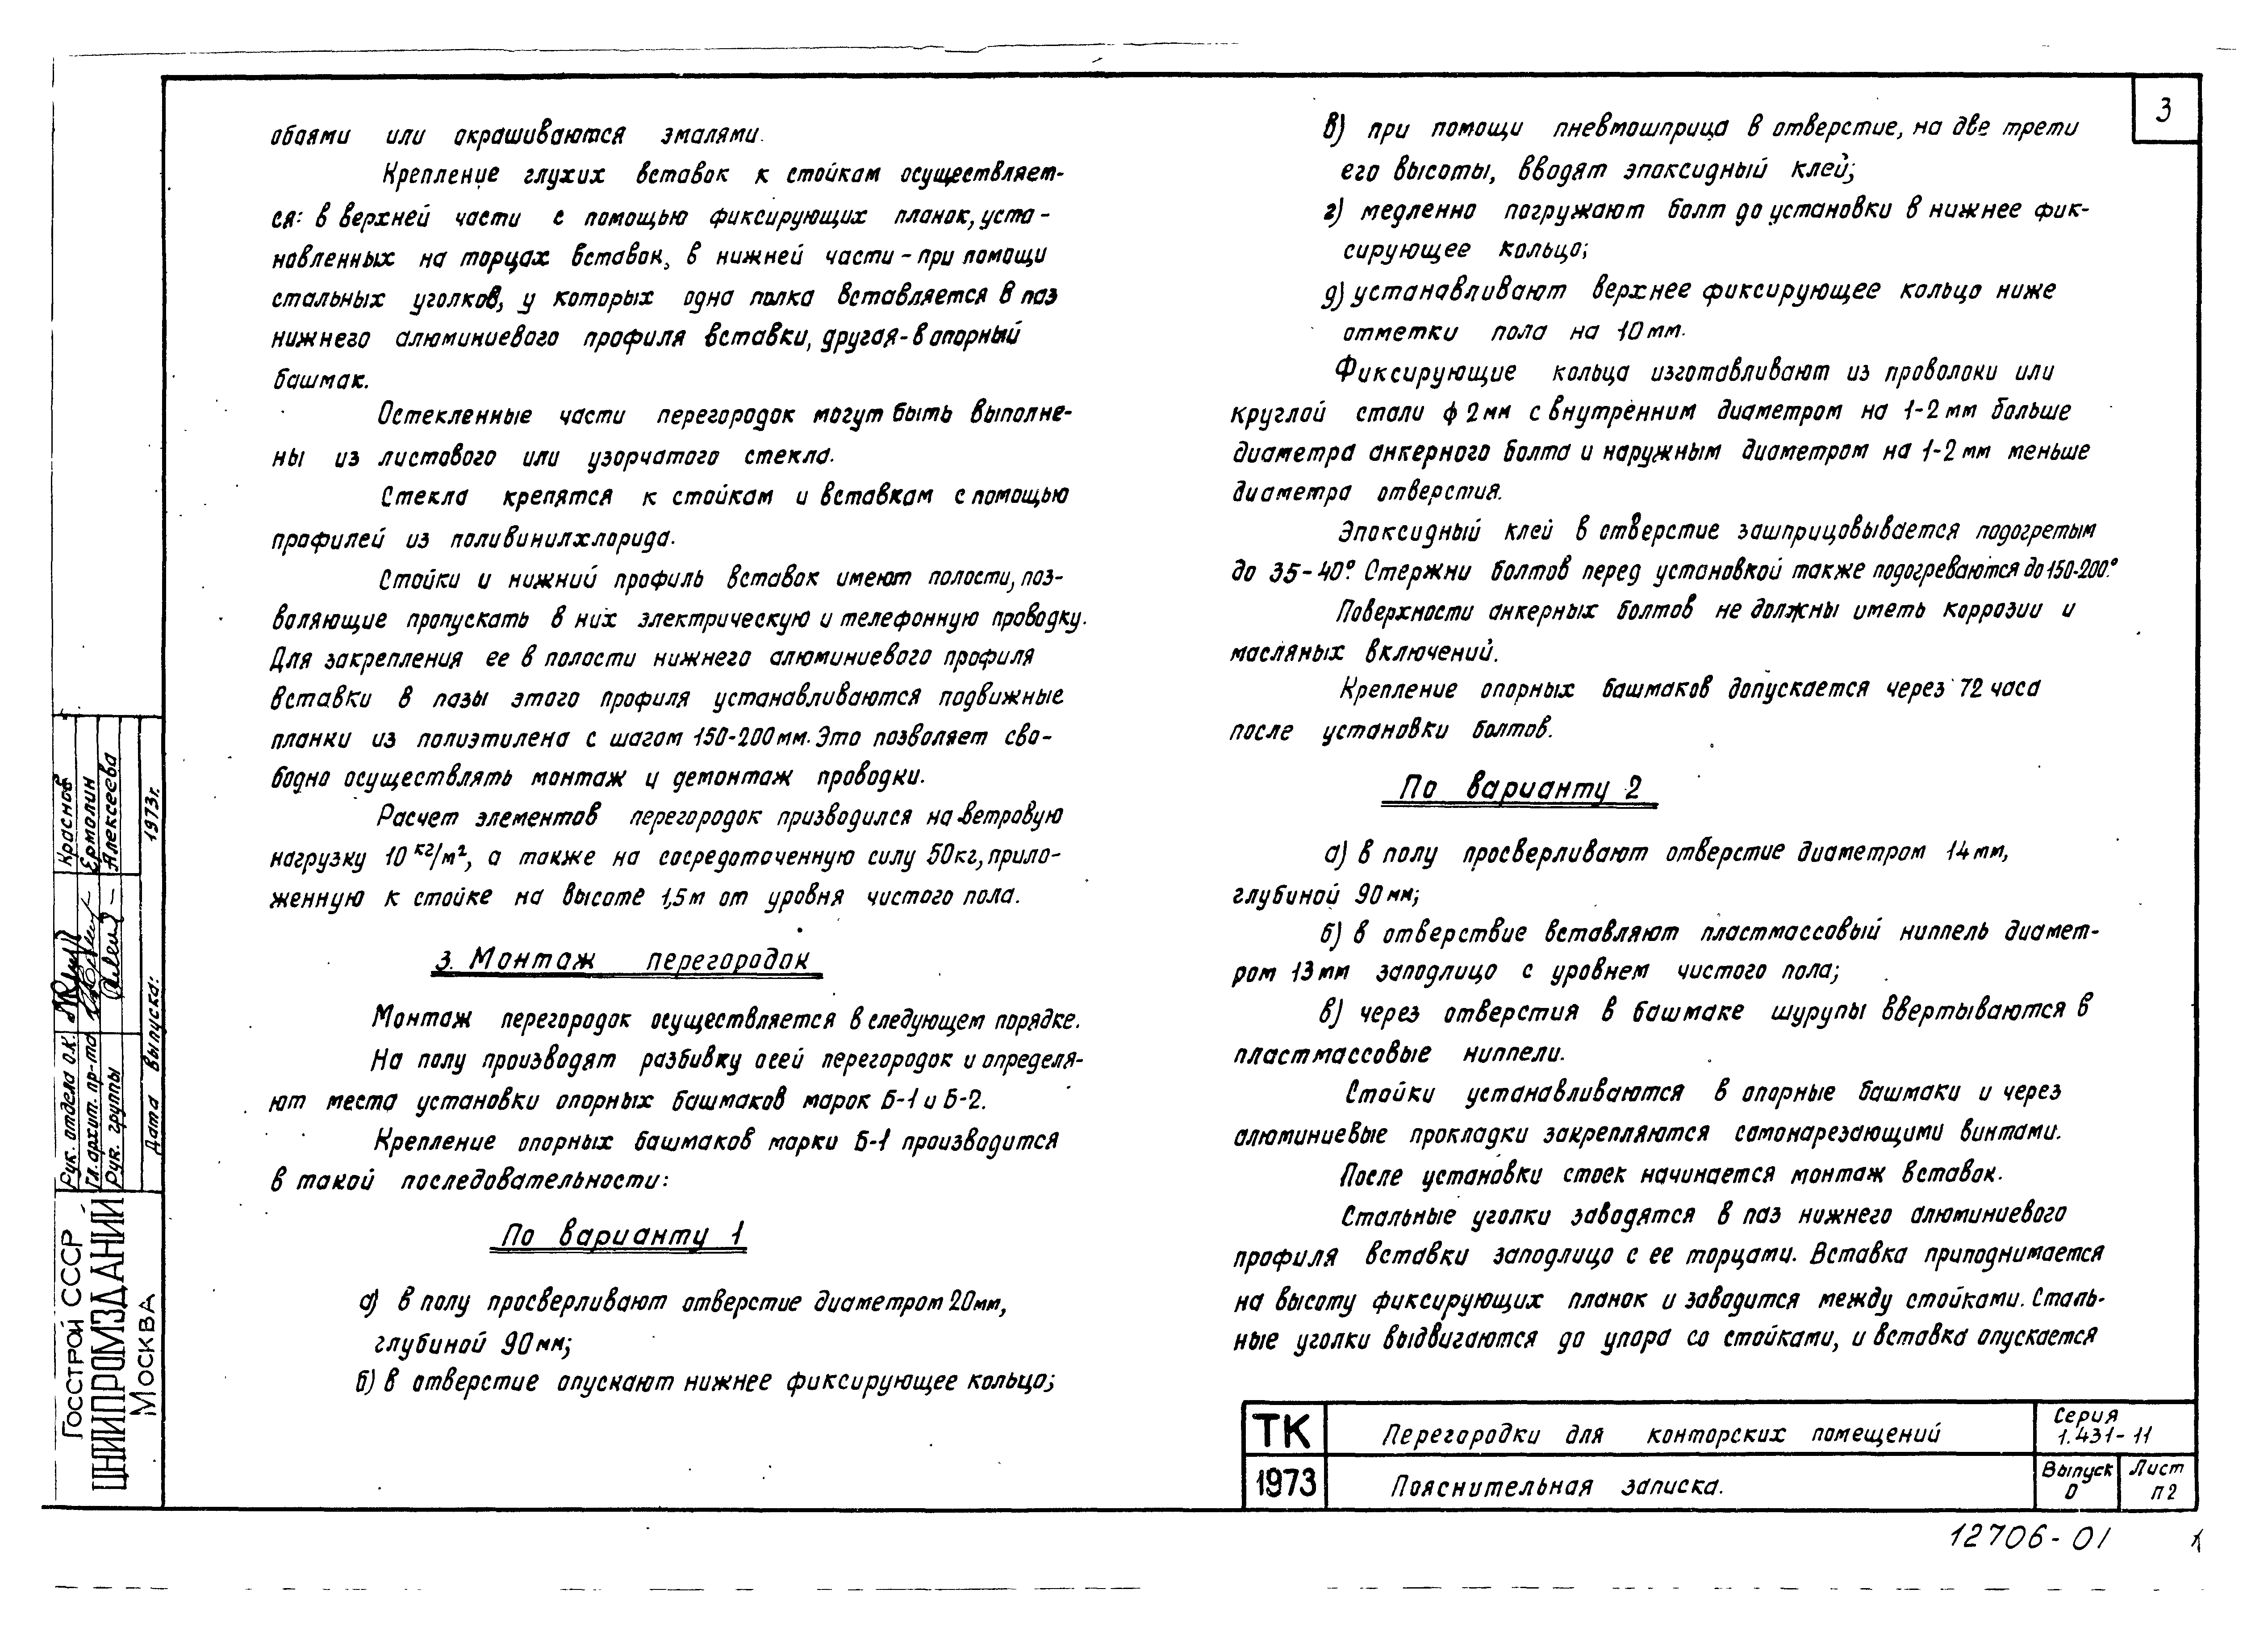 3
обоями или окрашиваются эмалями.
Крепление глухих вставок к стойкам осуществляет-
ся: в верхней части с помощью фиксирующих планок, уста-
новленных на торцах вставок, в нижней части - при помощи
стальных уголков, у которых одна полка вставляется в паз
нижнего алюминиевого профиля вставки, другая - в опорный
башмак.
Остекленные части перегородок могут быть выполне-
ны из листового или узорчатого стекла.
Стекла крепятся к стойкам и вставкам с помощью
профилей из поливинилхлорида.
Стойки и нижний профиль вставок имеют полости, поз-
воляющие пропускать в них электрическую и телефонную проводку.
Для закрепления ее в полости нижнего алюминиевого профиля
вставки в пазы этого профиля устанавливаются подвижные
планки из полиэтилена с шагом 150-200мм. Это позволяет сво-
бодно осуществлять монтаж и демонтаж проводки.
Расчет элементов перегородок призводился на ветровую
нагрузку 10 кг/м², а также на сосредоточенную силу 50кг, прило-
женную к стойке на высоте 1,5м от уровня чистого пола.
3. Монтаж перегородок
Монтаж перегородок осуществляется в следующем порядке.
На полу производят разбивку осей перегородок и определя-
ют места установки опорных башмаков марок Б-1 и Б-2.
Крепление опорных башмаков марки Б-1 производится
в такой последовательности:
По варианту 1
а) в полу просверливают отверстие диаметром 20мм,
глубиной 90мм;
б) в отверстие опускают нижнее фиксирующее кольцо;
в) при помощи пневмошприца в отверстие, на две трети
его высоты, вводят эпоксидный клей;
г) медленно погружают болт до установки в нижнее фик-
сирующее кольцо;
д) устанавливают верхнее фиксирующее кольцо ниже
отметки пола на 10мм.
Фиксирующие кольца изготавливают из проволоки или
круглой стали ф 2мм с внутренним диаметром на 1-2мм больше
диаметра анкерного болта и наружным диаметром на 1-2мм меньше
диаметра отверстия.
Эпоксидный клей в отверстие зашприцовывается подогретым
до 35-40°. Стержни болтов перед установкой также подогреваются до 150-200°.
Поверхности анкерных болтов не должны иметь коррозии и
масляных включений.
Крепление опорных башмаков допускается через 72 часа
после установки болтов.
По варианту 2
а) в полу просверливают отверстие диаметром 14мм,
глубиной 90мм;
б) в отверствие вставляют пластмассовый ниппель диамет-
ром 13мм заподлицо с уровнем чистого пола;
в) через отверстия в башмаке шурупы ввертываются в
пластмассовые ниппели.
Стойки устанавливаются в опорные башмаки и через
алюминиевые прокладки закрепляются самонарезающими винтами.
После установки стоек начинается монтаж вставок.
Стальные уголки заводятся в паз нижнего алюминиевого
профиля вставки заподлицо с ее торцами. Вставка приподнимается
на высоту фиксирующих планок и заводится между стойками. Сталь-
ные уголки выдвигаются до упора со стойками, и вставка опускается
ТК
1973
Перегородки для конторских помещений
Пояснительная записка.
Серия
1.431-11
Выпуск
0
Лист
П2
12706-01
Госстрой СССР
ЦНИИПРОМЗДАНИЙ
Москва
Рук. отдела О.К. Краснов
Гл. архит. пр-та Ермолин
Рук. группы Алексеева
Дата выпуска: 1973г.